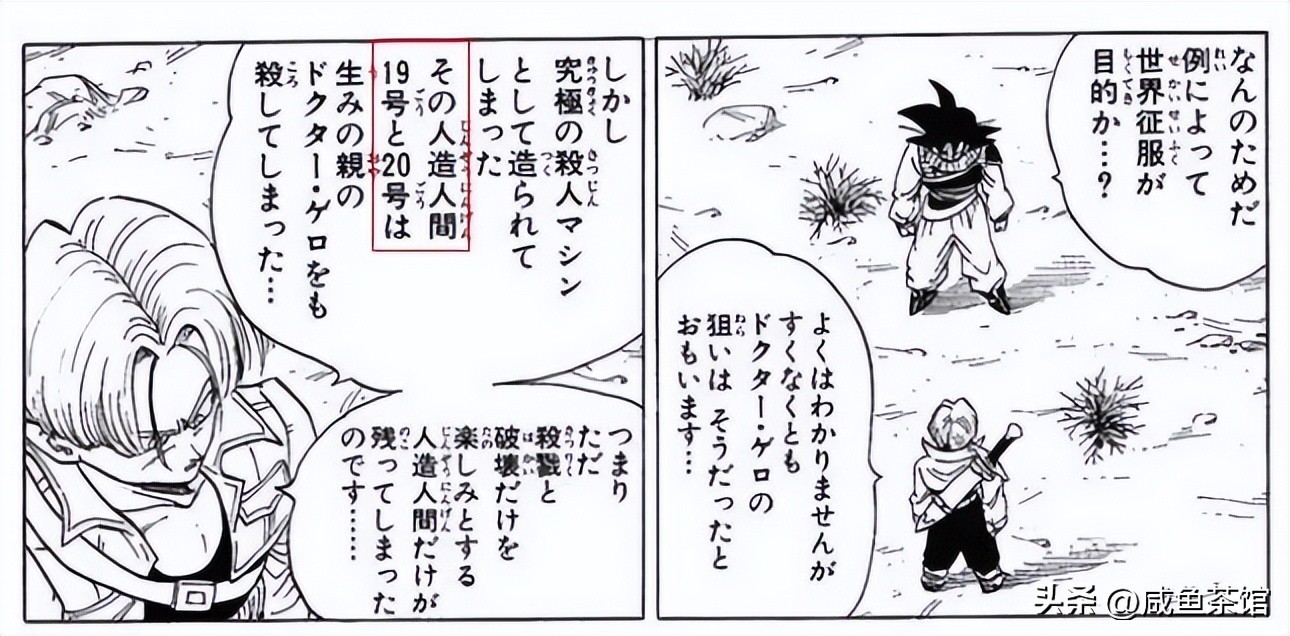 なんのためだ
例によって
世界征服が
目的か…?
よくはわかりませんが
すくなくとも
ドクター・ゲロの
狙いは そうだったと
おもいます…
しかし
究極の殺人マシン
として造られて
しまった
その人造人間
19号と20号は
生みの親の
ドクター・ゲロをも
殺してしまった…
つまり
ただ
殺戮と
破壊だけを
楽しみとする
人造人間だけが
残ってしまった
のです……
头条 @咸鱼茶馆